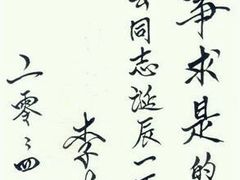 事求是的
同志诞辰一百
李
二零零四